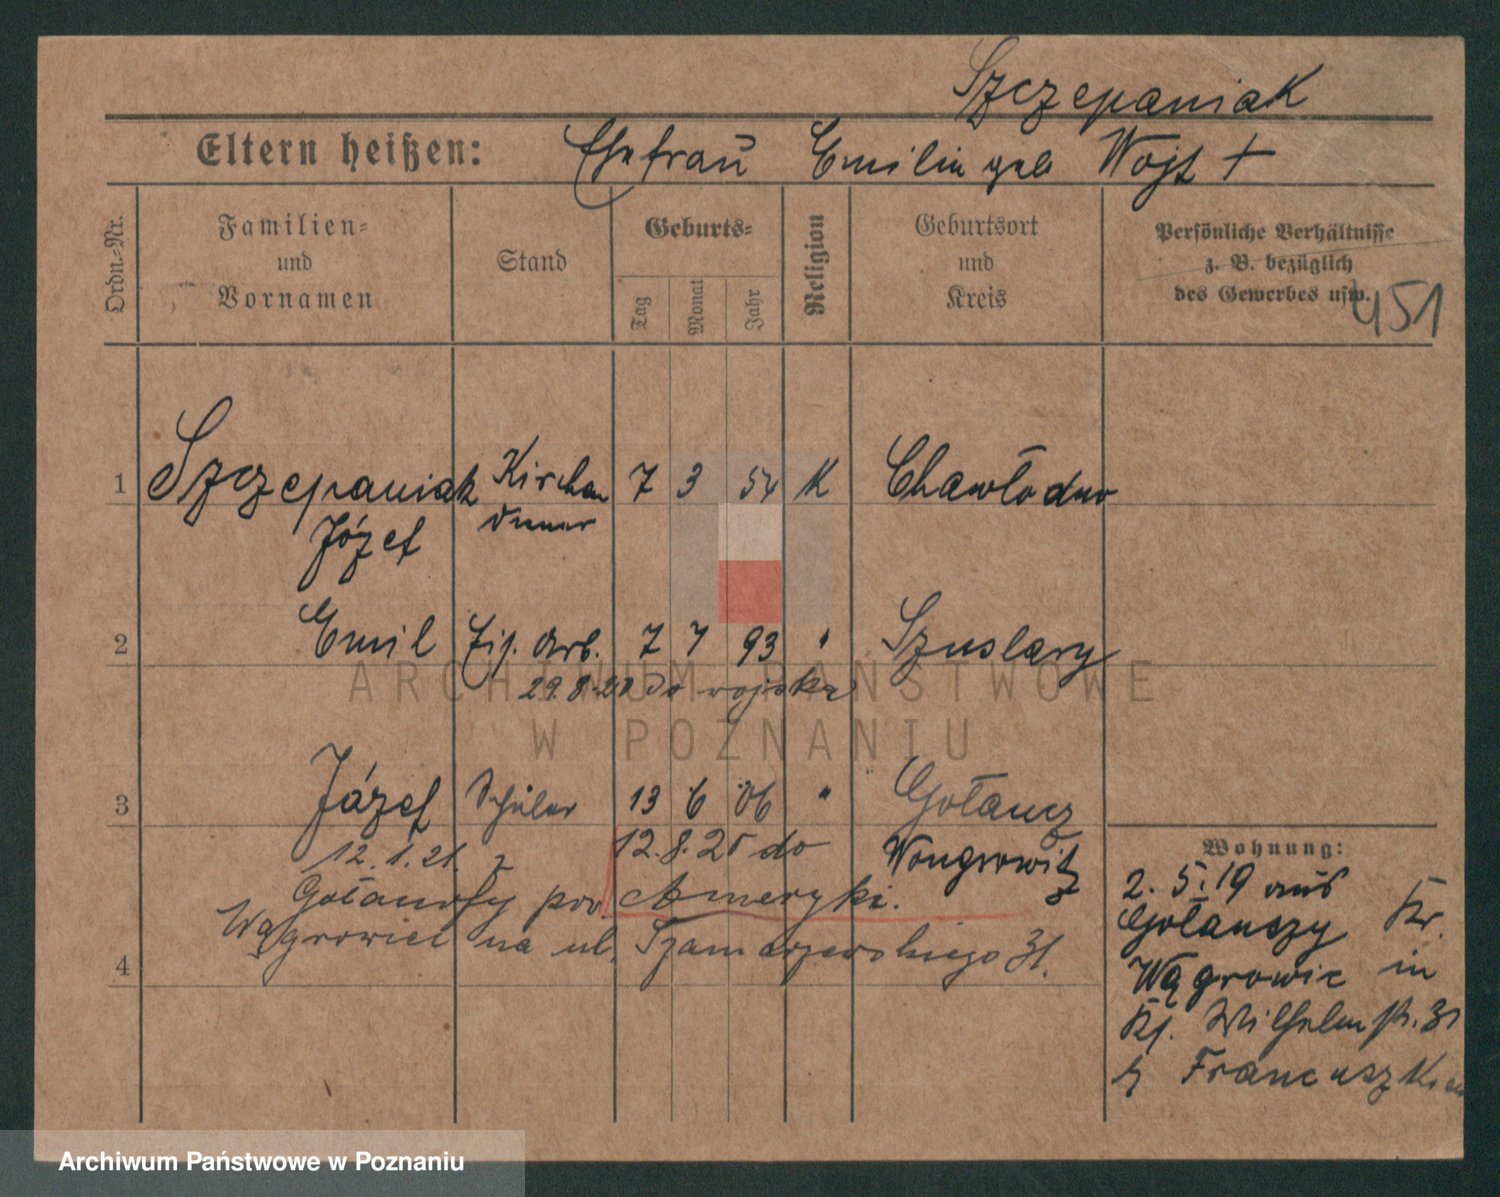 Szczepaniak
Eltern heißen: Ehefrau Emilia geb Wojt +
Ordn.-Nr.
Familien- und Vornamen
Stand
Geburts-
Tag
Monat
Jahr
Religion
Geburtsort und Kreis
Persönliche Verhältnisse
z. B. bezüglich
des Gewerbes usw.
451
1 Szczepaniak Kirchen 7 3 54 K Chawłodno
Józef diener
2 Emil Zig. Arb. 7 7 93 " Szuslary
29.8.20 do wojska
3 Józef Schüler 13 6 06 " Gołancz
12.1.21. z 12.8.25 do Wongrowitz
Gołanczy pow. Ameryki.
Wągrowiec na ul. Szamarzewskiego 31.
4
Wohnung:
2. 5. 19 aus
Gołanczy Kr.
Wągrowic in
Wilhelmstr. 31
Franciszk
ARCHIWUM PAŃSTWOWE
W POZNANIU
Archiwum Państwowe w Poznaniu